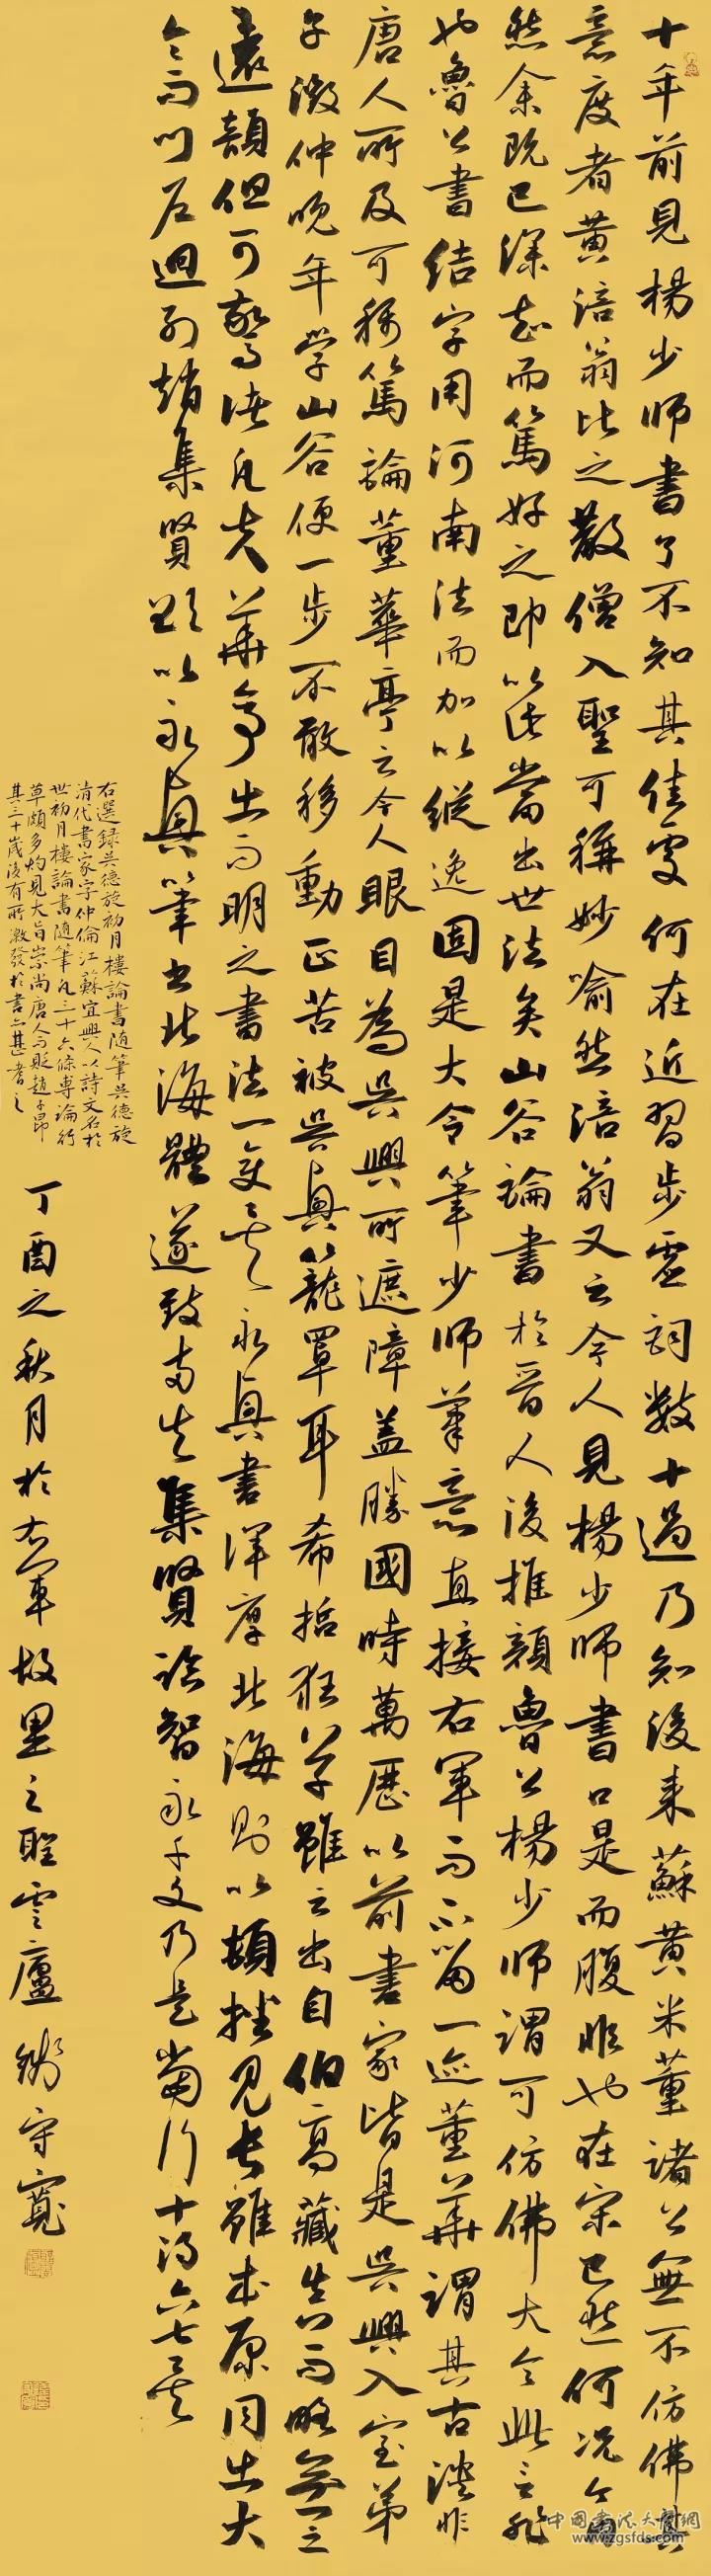 十年前見楊少師書了不知其佳處何在近習步虛詞數十過乃知後来蘇黄米董諸公無不仿佛其
意度者黄涪翁比之散僧入聖可稱妙喻然涪翁又云今人見楊少师書口是而腹非也在宋已然何况今
然余既已深知而篤好之即以此當出世法矣山谷論書於晋人後推顔魯公楊少师謂可仿佛大令此言非
也魯公書結字用河南法而加以縱逸固是大令筆少师筆意直接右軍而不留一迹董華謂其古淡非
唐人所及可稱篤論董華亭云今人眼目為吴興所遮障盖勝國時萬歷以前書家皆是吴興入室弟
子徵仲晚年学山谷便一步不敢移動正苦被吴興籠罩耳希哲狂草雖云出自伯高藏真而略無一之
遠韻但可驚諸凡夫華亭出而明之書法一變矣永興書渾厚北海則以頓挫見長雖本原同出大
令而门户迥别趙集賢以永興筆書北海體遂致兩失集賢論智永千文乃是當行十得六七矣
右選録吴德旋初月樓論書随筆吴德旋
清代書家字仲倫江蘇宜興人以詩文名於
世初月樓論書随筆凡三十六條專論行
草頗多灼見大旨崇尚唐人而貶趙子昂
其三十歲後有所激發於書亦甚耆之
丁酉之秋月於右軍故里之聖雲廬 守寬
中國書法大家網
www.zgsfds.com